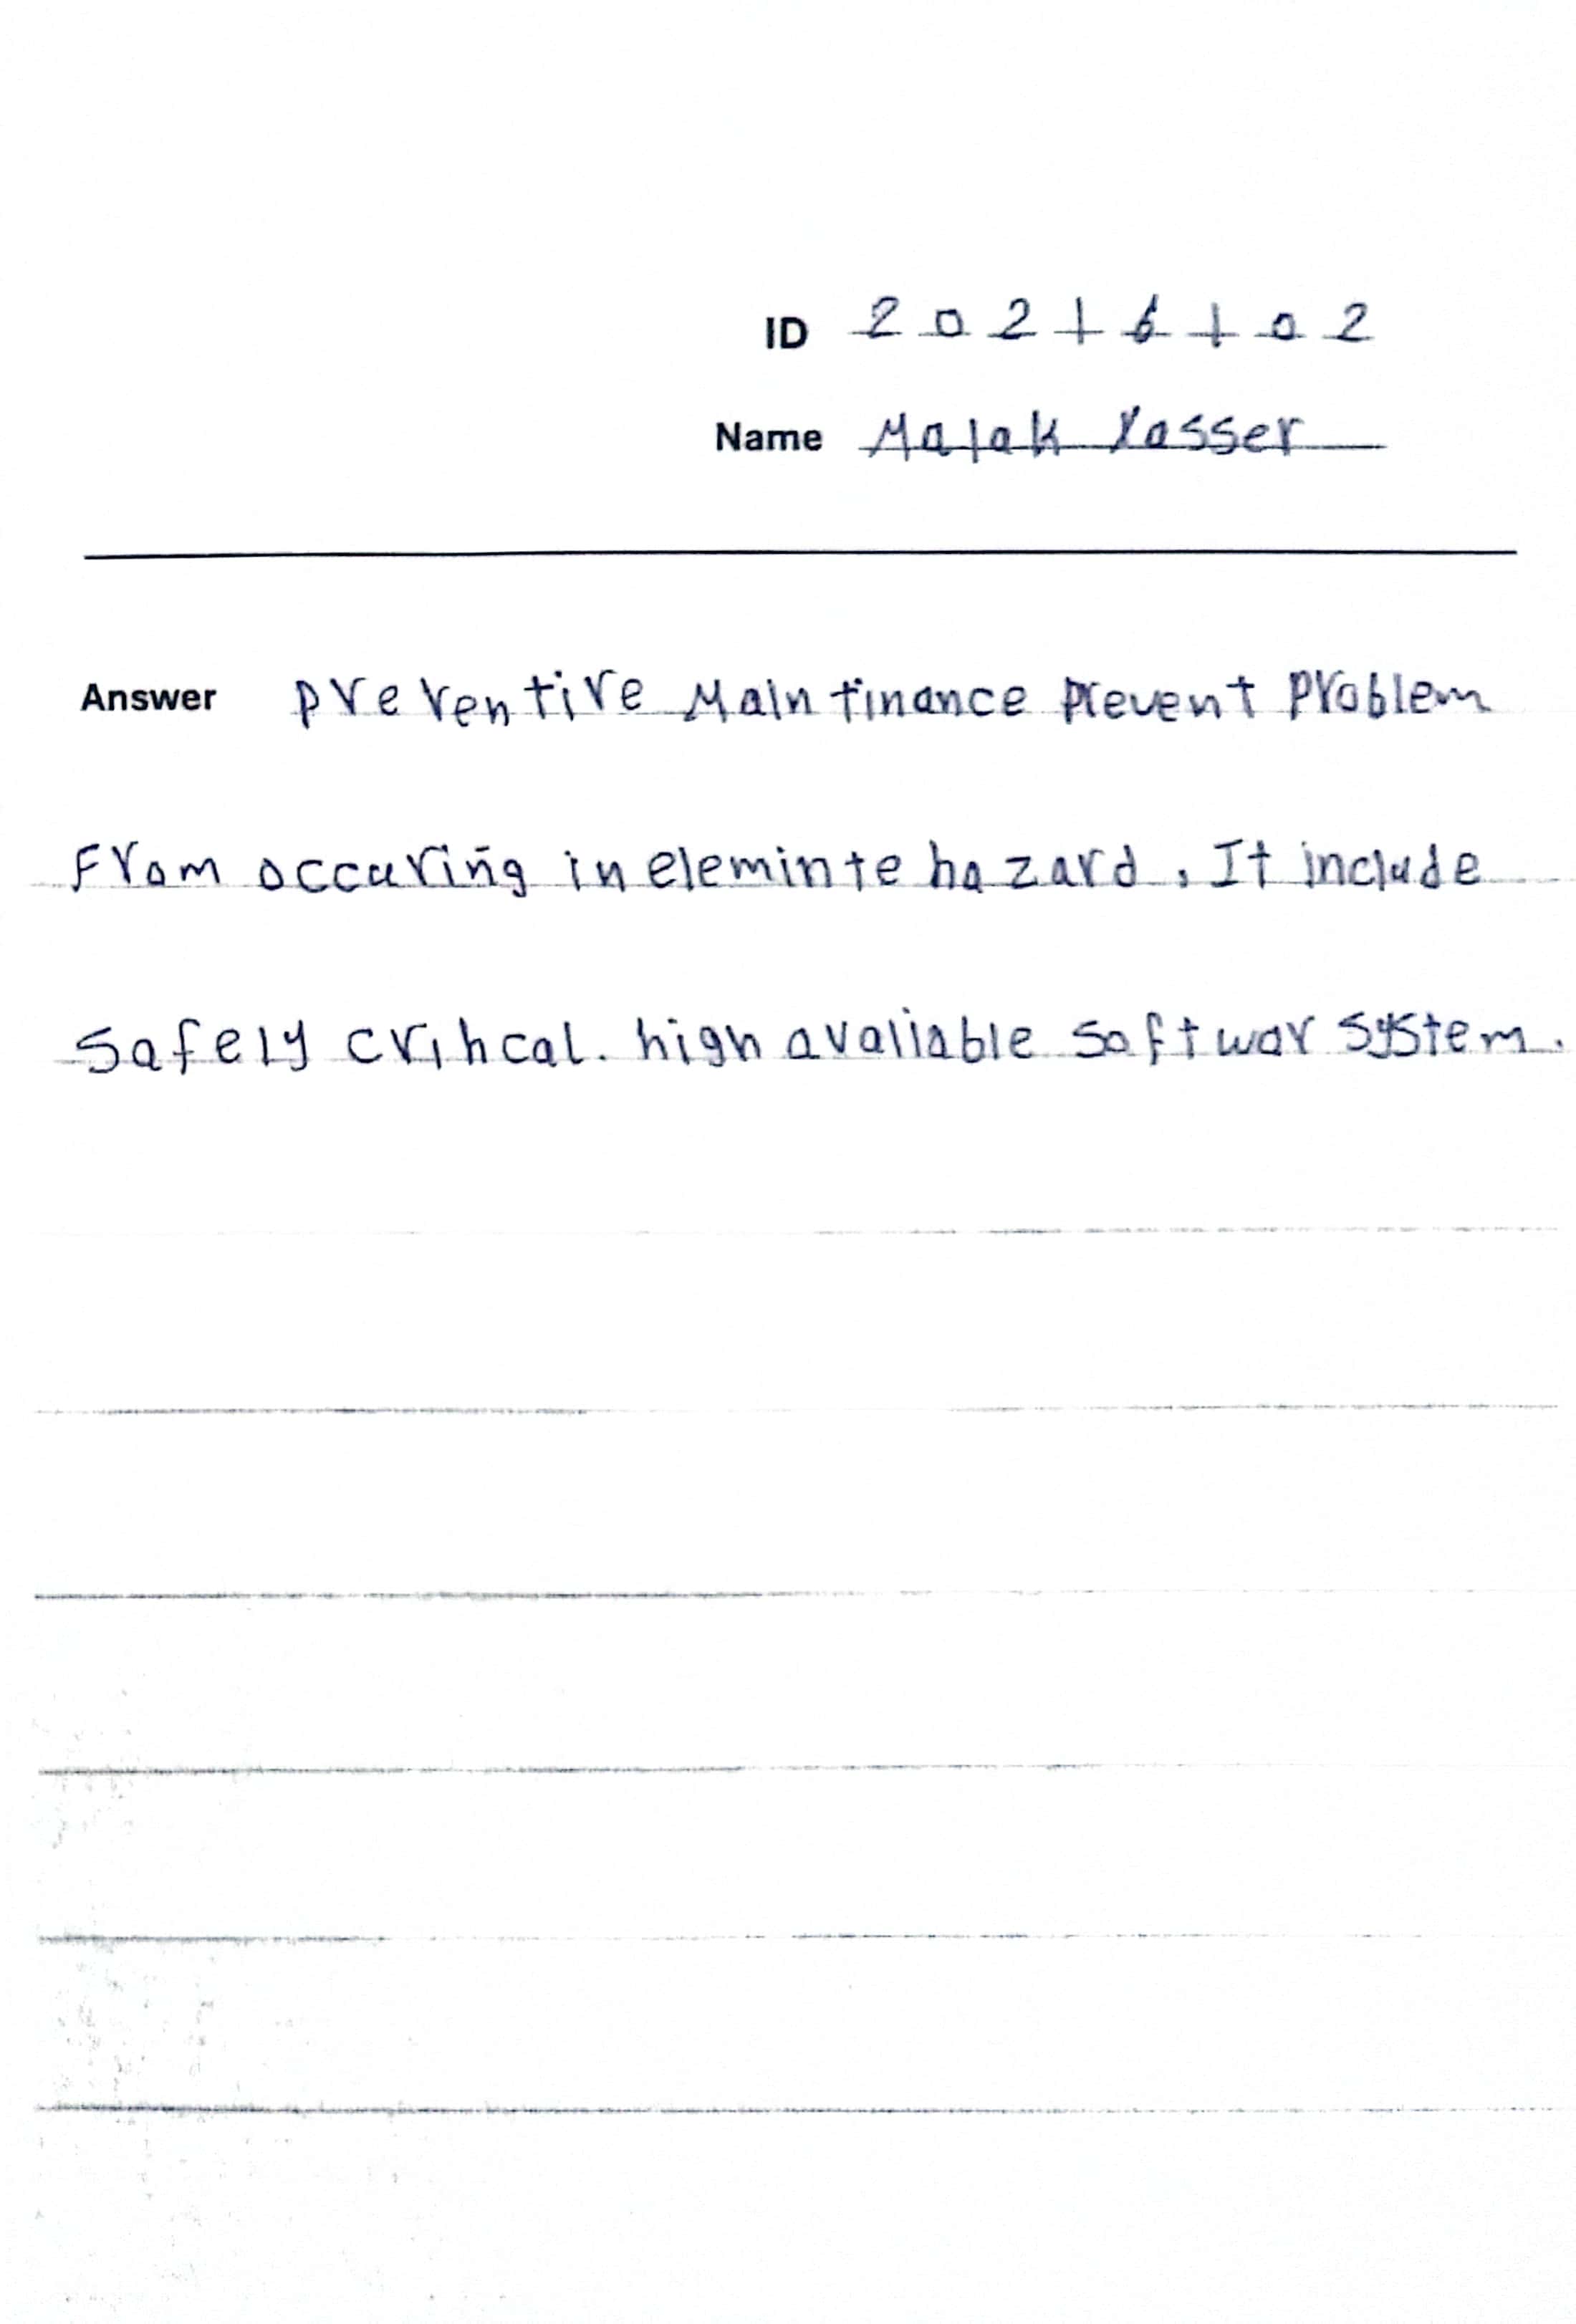 ID 20216102
Name Malak Yasser
Answer preventive Maintinance prevent problem
From occuring in eleminte hazard. It include
safely crihcal. high avaliable softwar system.